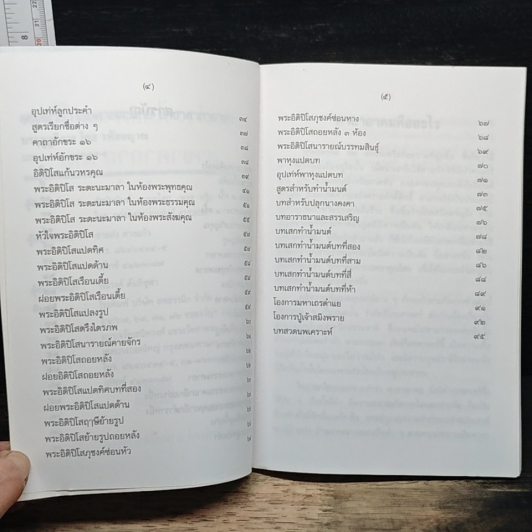 (๔)
อุปเท่ห์ลูกประคำ ๓๔
สูตรเรียกชื่อต่าง ๆ ๓๗
คาถาอักขระ ๑๖ ๓๘
อุปเท่ห์อักขระ ๑๖ ๓๘
อิติปิโสแก้นวหรคุณ ๓๙
พระอิติปิโส ระตะนะมาลา ในห้องพระพุทธคุณ ๔๑
พระอิติปิโส ระตะนะมาลา ในห้องพระธรรมคุณ
พระอิติปิโส ระตะนะมาลา ในห้องพระสังฆคุณ
หัวใจพระอิติปิโส
พระอิติปิโสแปดทิศ
พระอิติปิโสแปดด้าน
พระอิติปิโสเรือนเตี้ย
ฝอยพระอิติปิโสเรือนเตี้ย
พระอิติปิโสแปลงรูป
พระอิติปิโสตรึงไตรภพ
พระอิติปิโสนารายณ์คายจักร
พระอิติปิโสถอยหลัง
ฝอยอิติปิโสถอยหลัง
พระอิติปิโสแปดทิศบทที่สอง
ฝอยพระอิติปิโสแปดด้าน
พระอิติปิโสฤาษีย้ายรูป
พระอิติปิโสย้ายรูปถอยหลัง
พระอิติปิโสภุชงค์ซ่อนหัว
(๕)
พระอิติปิโสภุชงค์ซ่อนหาง ๖๗
พระอิติปิโสถอยหลัง ๓ ห้อง ๖๘
พระอิติปิโสนารายณ์บรรทมสินธุ์ ๖๙
พาหุงแปดบท ๗๐
อุปเท่ห์พาหุงแปดบท ๗๑
สูตรสำหรับทำน้ำมนต์ ๗๓
บทสำหรับปลุกนางคงคา ๗๕
บทอาราธนาและสรรเสริญ ๗๖
บทเสกทำน้ำมนต์ ๗๘
บทเสกทำน้ำมนต์บทที่สอง ๘๒
บทเสกทำน้ำมนต์บทที่สาม ๘๖
บทเสกทำน้ำมนต์บทที่สี่ ๘๘
บทเสกทำน้ำมนต์บทที่ห้า ๘๙
โองการมหาเถรตำแย ๙๑
โองการปู่เจ้าสมิงพราย ๙๒
บทสวดนพเคราะห์ ๙๕